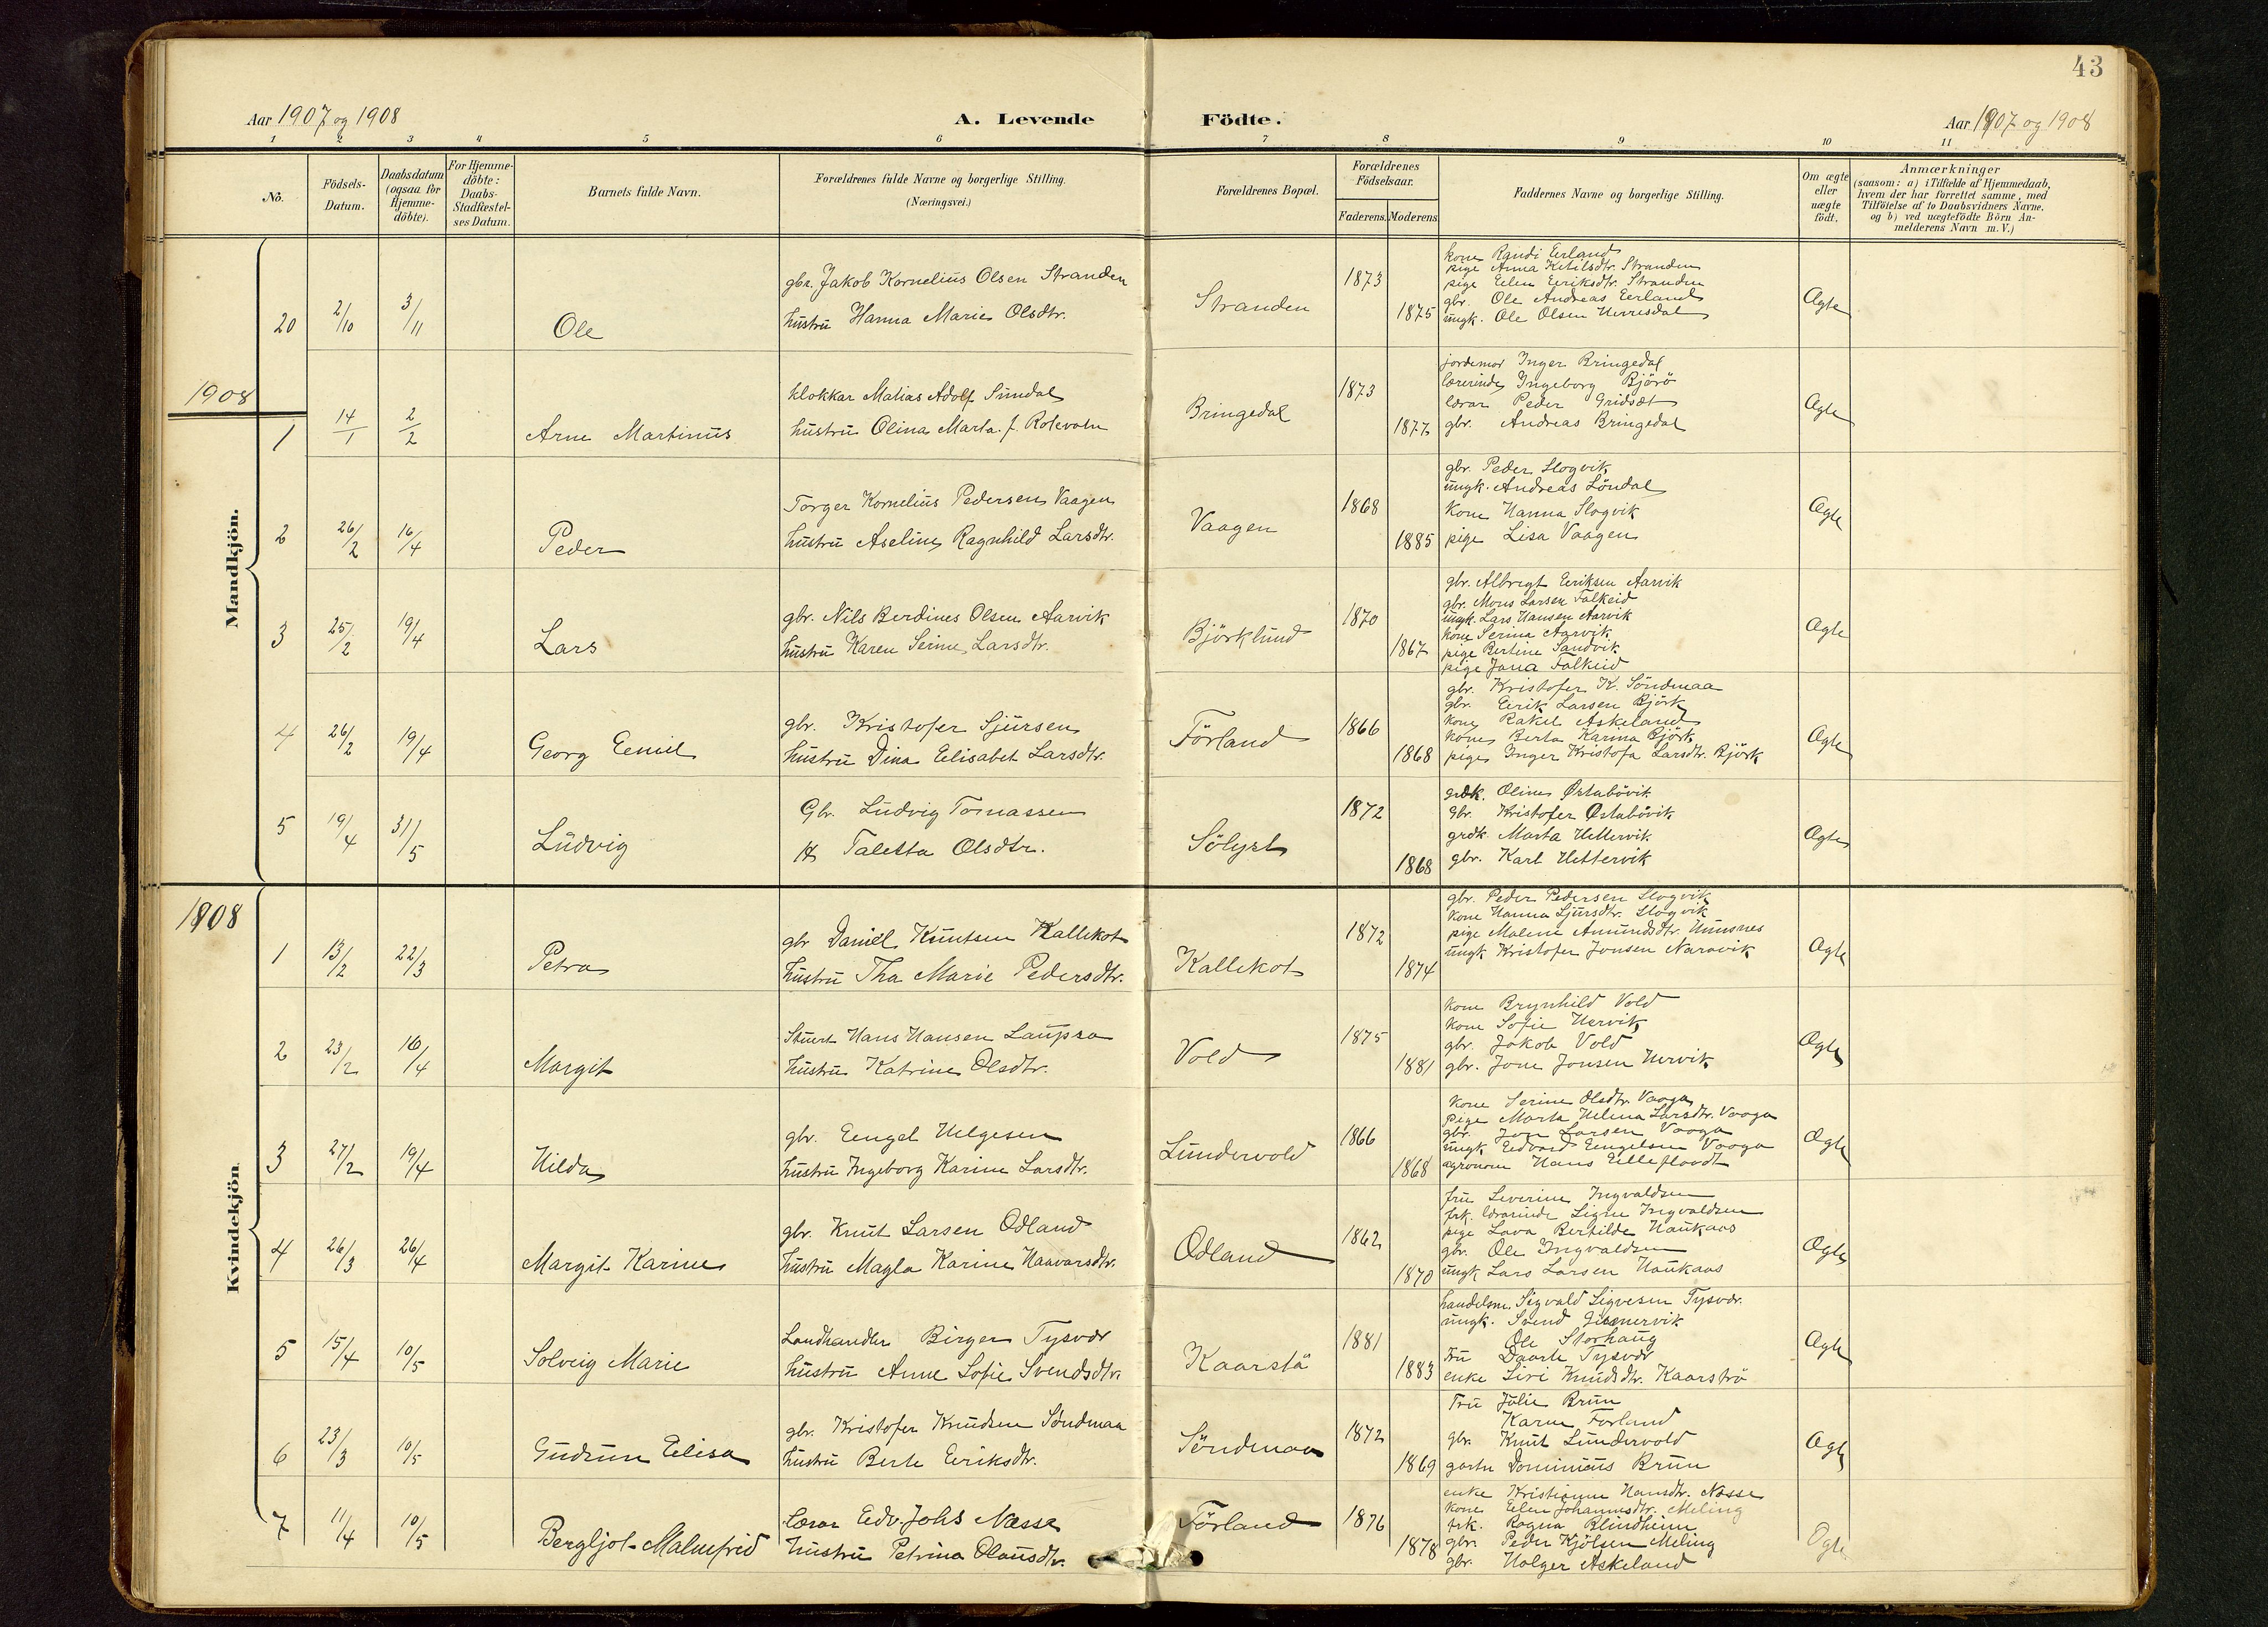 43
Aar 1907 og 1908
A. Levende Födte.
Aar 1907 og 1908
1 2 3 4 5 6 7 8 9 10 11
No.
Födsels-Datum.
Daabsdatum (ogsaa for Hjemme-döbte).
For Hjemme-döbte: Daabs-Stadfæstel-ses Datum.
Barnets fulde Navn.
Forældrenes fulde Navne og borgerlige Stilling.
(Næringsvei.)
Forældrenes Bopæl.
Forældrenes Födselsaar.
Faderens. Moderens.
Faddernes Navne og borgerlige Stilling.
Om ægte eller uægte födt.
Anmærkninger
(saasom: a) i Tilfælde af Hjemmedaab,
hvem der har forrettet samme, med
Tilföielse af to Daabsvidners Navne,
og b) ved uægtefödte Börn An-
melderens Navn m. V.)
Mandkjön.
20 2/10 3/11 Ole
gbr. Jakob Kornelius Olsen Stranden
hustru Hanna Marie Olsdtr.
Stranden 1873 1875
kone Randi Eerland
pige Anna Ketilsdtr. Stranden
pige Eelen Eeriksdtr. Stranden
gbr. Ole Andreas Eerland
ungk. Ole Olsen Nerresdal
Ægte
1908
1 14/1 2/2 Arne Martinus
klokkar Matias Adolf Sundal
hustru Olina Marta f. Rotevatn
Bringedal 1873 1877
jordemor Inger Bringedal
lærerinde Ingeborg Bjorö
lærar Peder Gridsæt
gbr. Andreas Bringedal
Ægte
2 26/2 16/4 Peder
Torger Kornelius Pedersen Vaagen
hustru Aseline Ragnhild Larsdtr.
Vaagen 1868 1885
gbr. Peder Slogvik
ungk. Andreas Löndal
Kone Hanna Slogvik
pige Lisa Vaagen
Ægte
3 25/2 19/4 Lars
gbr. Nils Berdines Olsen Aarvik
hustru Karen Serine Larsdtr.
Björklund 1870 1867
gbr. Albregt Eeriksen Aarvik
gbr. Mons Larsen Falkeid
ungk. Lars Hansen Aarvik
kone Serina Aarvik
pige Bertine Sandvik
pige Jana Falkeid
Ægte
4 26/2 19/4 Georg Eemil
gbr. Kristofer Sjursen
hustru Dina Eelisabet Larsdtr.
Förland 1866 1868
gbr. Kristofer K. Söndmaa
gbr. Eerik Larsen Björk
kone Rakel Askeland
kone Berta Karina Björk
pige Inger Kristofa Larsdtr. Björk
Ægte
5 19/4 31/5 Ludvig
Gbr. Ludvig Tomassen
H Taletta Olsdtr.
Sölyst 1872 1868
grdk. Oline Østabövik
Gbr. Kristofer Østabövik
grdk. Marta Hettervik
gbr. Karl Hettervik
Ægte
1908
Kvindekjön.
1 13/2 22/3 Petra
gbr Daniel Knutsen Kallekot
hustru Tha Marie Pedersdtr.
Kallekot 1872 1874
gbr. Peder Pedersen Slogvik
kone Hanna Sjursdtr. Slogvik
pige Malene Amundsdtr. Nunsnes
ungk Kristofer Jonsen Naravik
Ægte
2 23/2 16/4 Margit
Hans Hansen Laupsa
hustru Katrine Olsdtr.
Vold 1875 1881
kone Brynhild Vold
kone Sofie Hervik
gbr. Jakob Vold
gbr. Jone Jonsen Hervik
Ægte
3 27/2 19/4 Hilda
gbr. Eengel Helgesen
hustru Ingeborg Karine Larsdtr.
Lundervold 1866 1868
kone Serine Olsdtr. Vaaga
pige Marta Helena Larsdtr. Vaaga
gbr. Jon Larsen Vaaga
ungk Eedvard Eengelsen Vaaga
agronom Hans Eilleflaadt
Ægte
4 26/3 26/4 Margit Karine
gbr. Knut Larsen Odland
hustru Magla Karine Haavarsdtr.
Odland 1862 1870
fru Severine Ingvaldsen
frk. lærarinde Signe Ingvaldsen
pige Lava Berhilde Haukaas
gbr. Ole Ingvaldsen
ungk Lars Larsen Haukaas
Ægte
5 15/4 10/5 Solveig Marie
Landhandler Birger Tysvær
hustru Anne Sofie Svendsdtr.
Kaarstø 1881 1883
handelsm. Sigvald Sigvesen Tysvær.
ungk. Svend
Ole Storhaug
Fru Daarte Tysvær
enke Siri Knudsdtr. Kaarstö
Ægte
6 23/3 10/5 Gudrun Eelisa
gbr. Kristofer Knudsen Söndmaa
hustru Berte Eeriksdtr.
Söndmaa 1872 1869
Fru Julie Brun
Karen Forland
gbr. Knut Lundervold
gartn Dominicus Brun
Ægte
7 11/4 10/5 Bergljot Malmfrid
Lærar Edv. Johs Næsse
hustru Petrina Olausdtr.
Förland 1876 1878
enke Kristianne Hansdtr. Næsse
kone Eelen Johannesdtr. Meling
frk. Ragna Blindheim
gbr. Peder Kjölsen Meling
gbr. Holger Askeland
Ægte